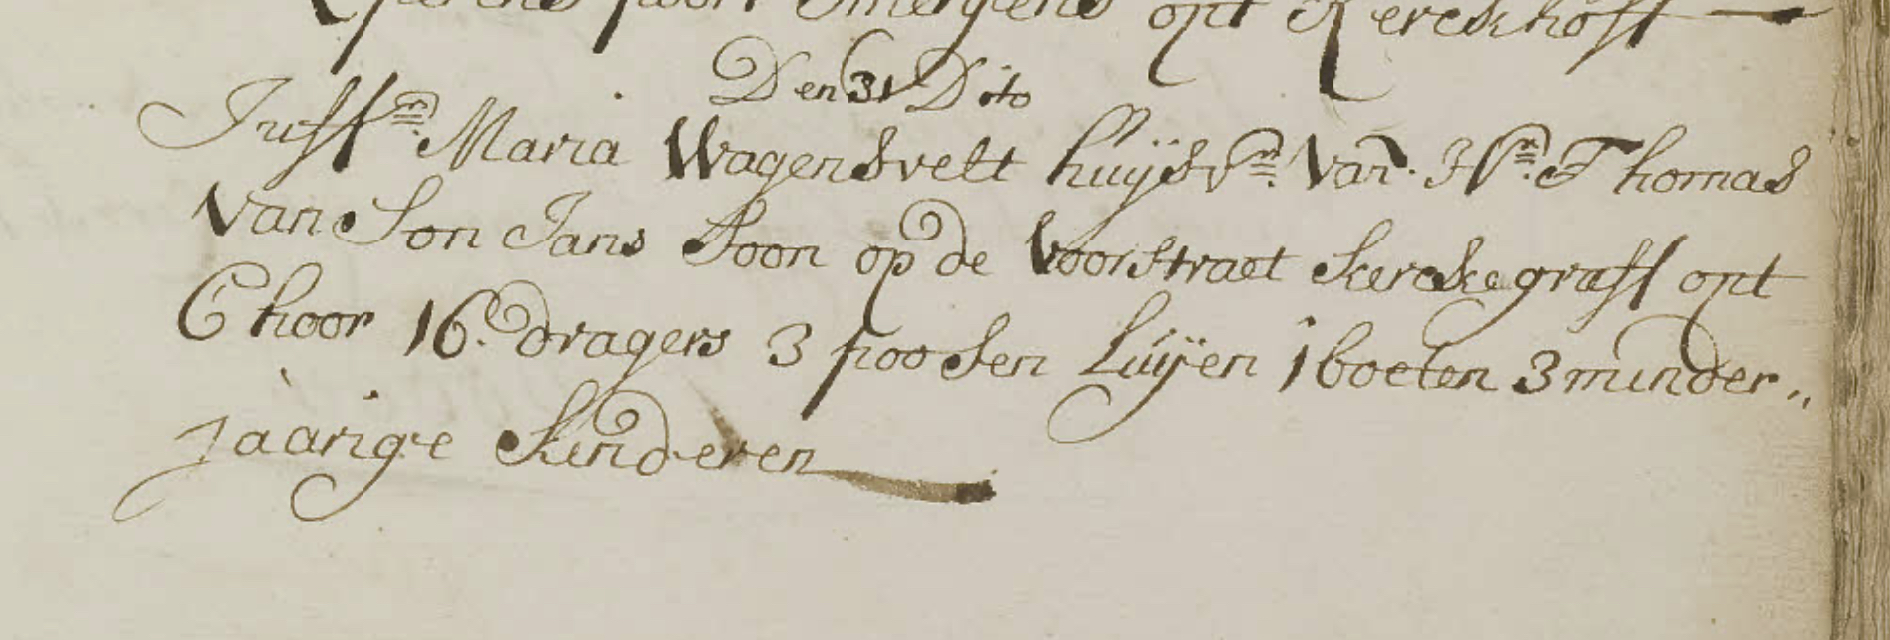 opt Kerckhoff
Den 31 Dito
Juffr. Maria Wagensvelt huijsvr. Van. Hr. Thomas
Van Son Jans Soon op de Voorstraet kerckegraff opt
Choor 16. dragers 3 poosen Luijen 1 boeten 3 minder„
jaarige kinderen